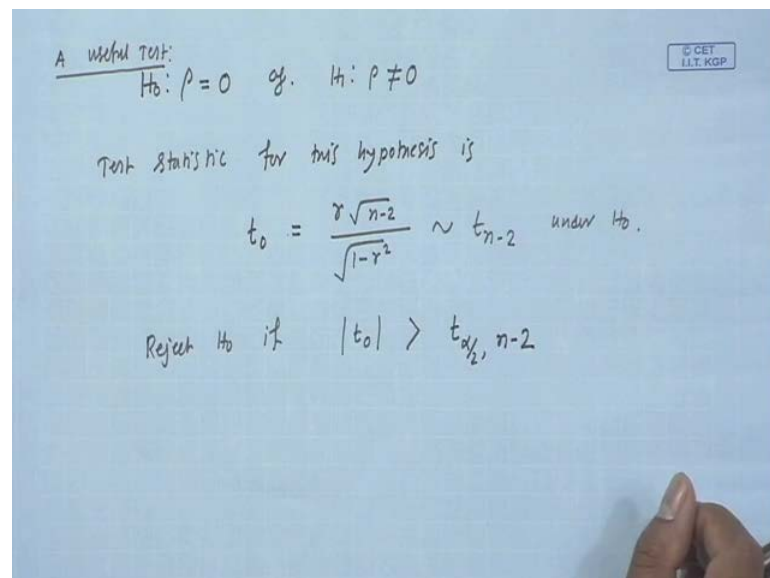 A useful Test:
H₀: ρ = 0 vs. H₁: ρ ≠ 0
© CET
I.I.T. KGP
Test Statistic for this hypothesis is
t₀ = r √(n-2) / √(1-r²) ~ t_{n-2} under H₀.
Reject H₀ if |t₀| > t_{α/2, n-2}